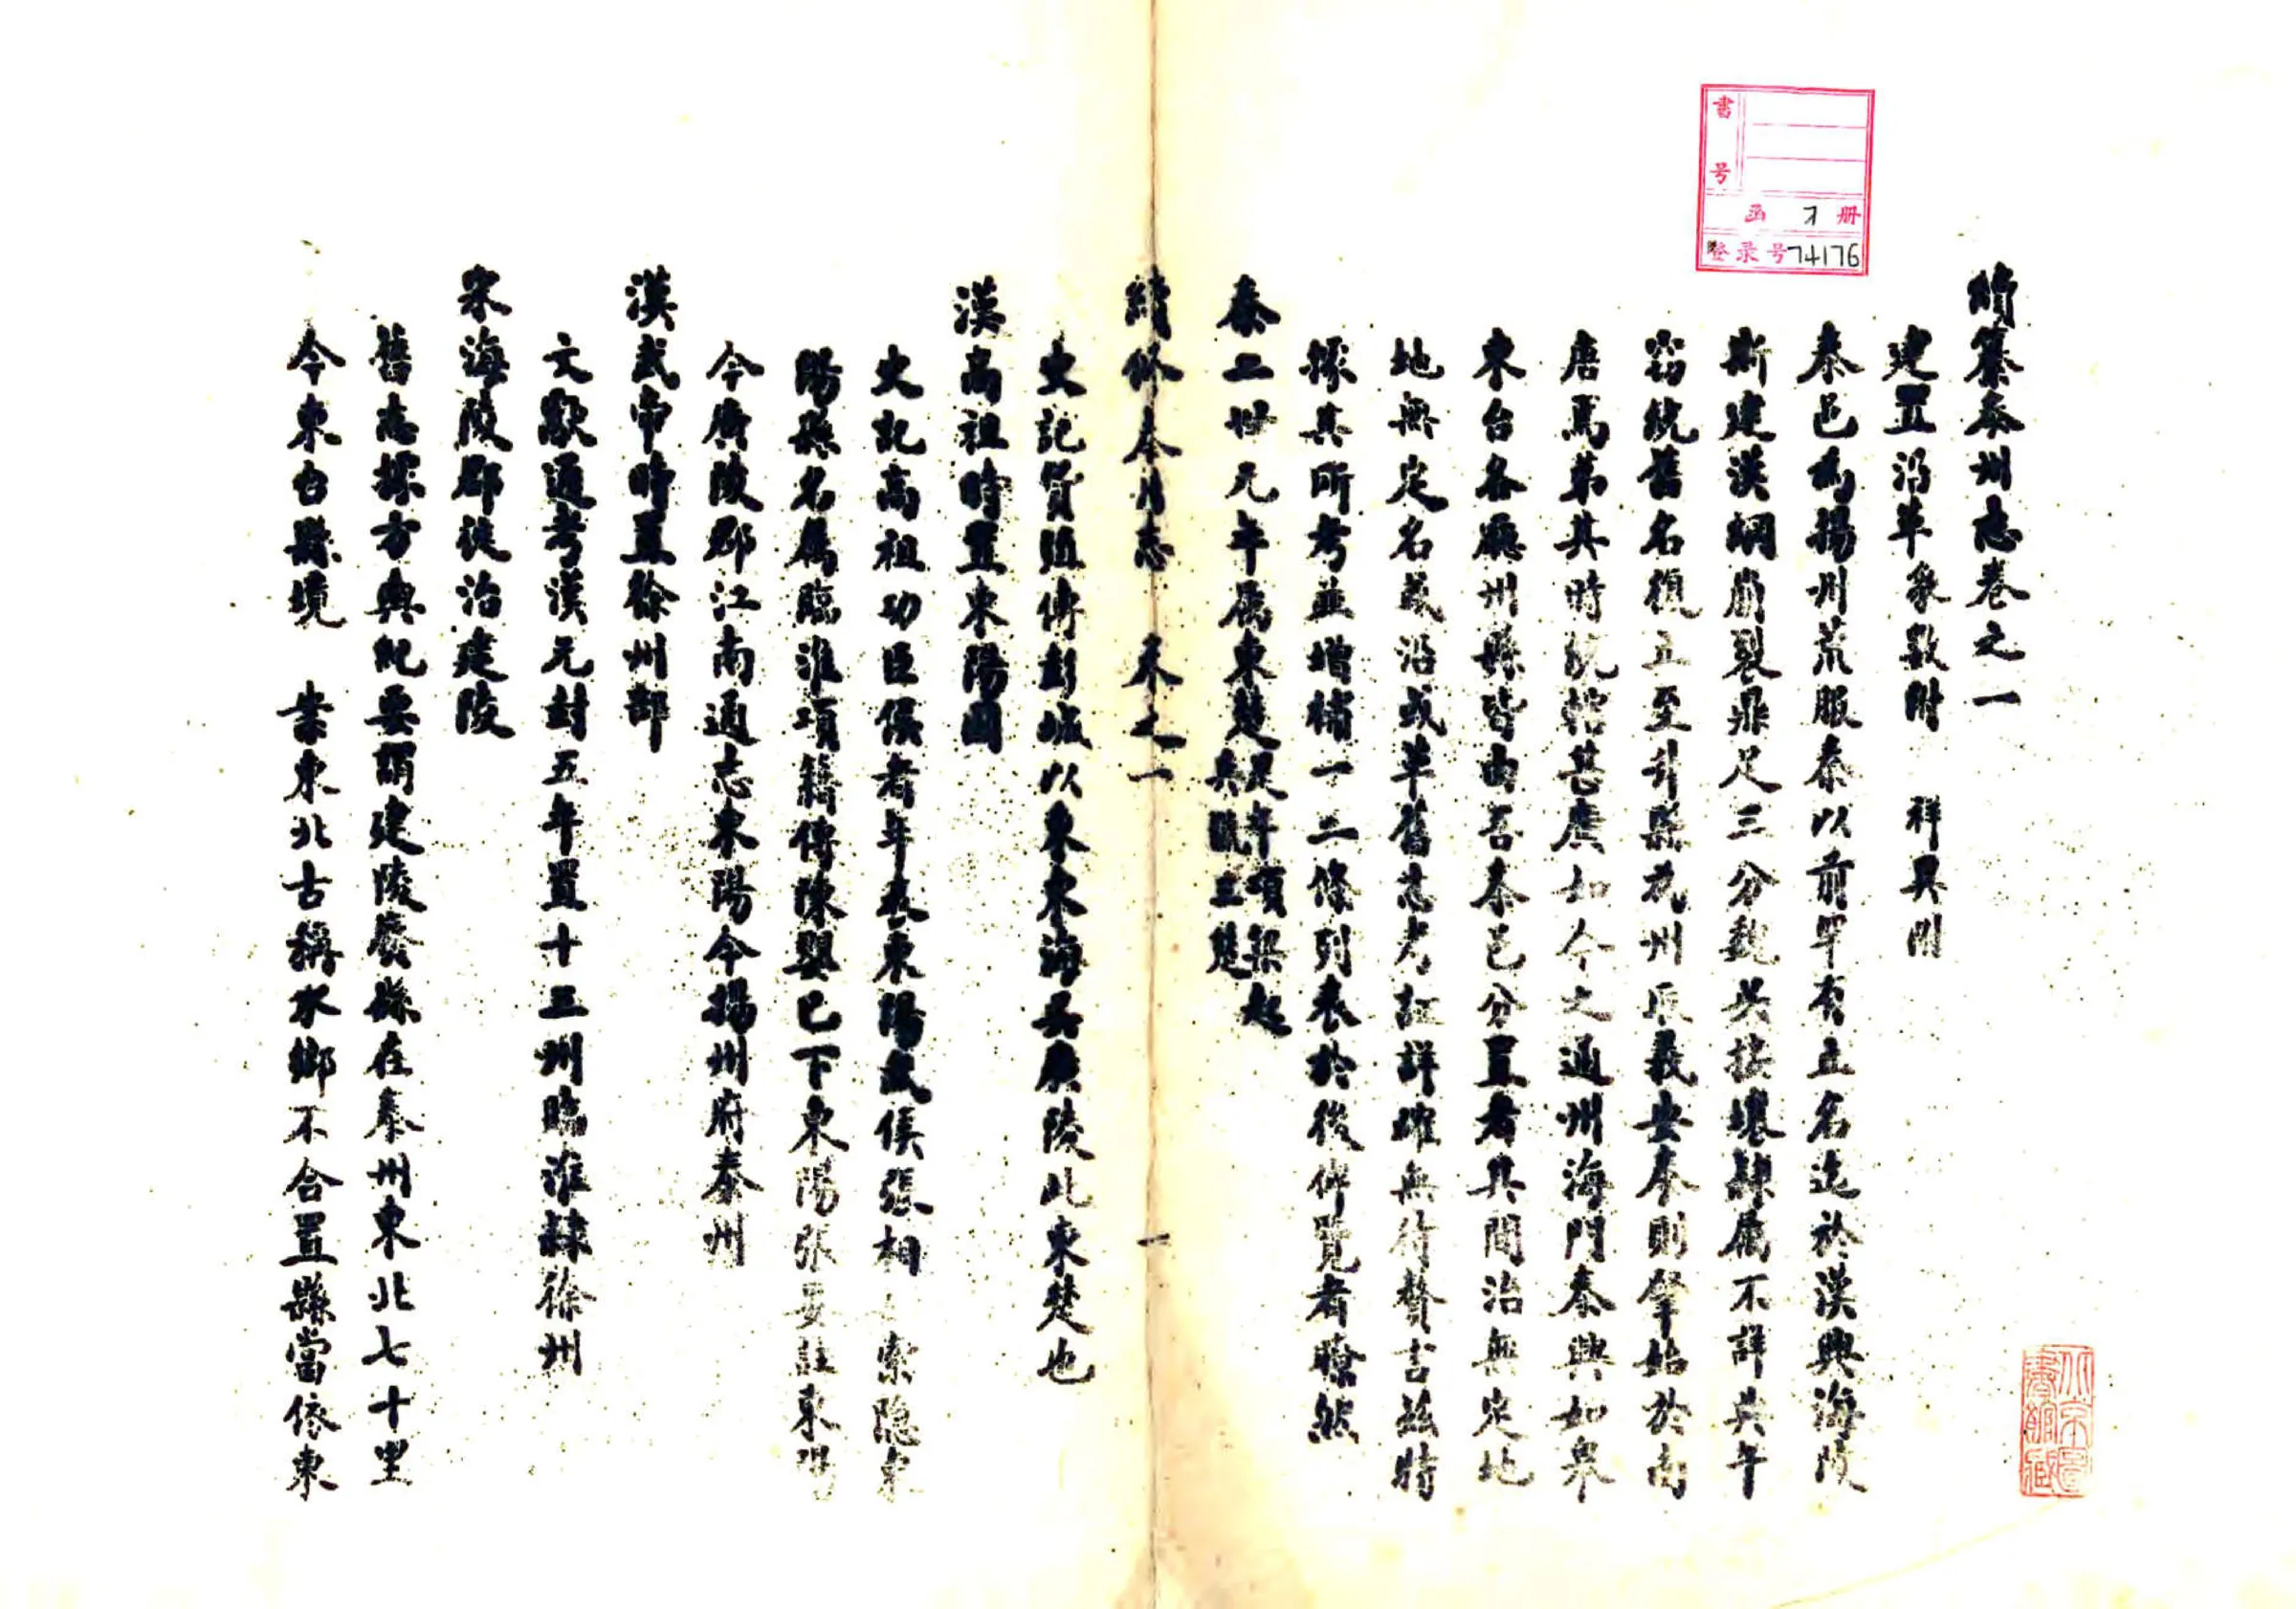 續纂泰州志卷之一
建置沿革象數附　祥異附
泰邑為揚州荒服秦以前罕有立名迄於漢興海陵
斯建漢綱崩裂鼎足三分魏吳接壤隸属不詳共午
竊統舊名復立至升縣為州厥義安泰則肇始於南
唐焉第其時統轄甚廣如今之通州海門泰興如皋
東台各廳州縣皆由吾泰邑分置者其間治無定地
地無定名或沿或革舊志考証詳確無待贅言茲特
據其所考並增補一二條列表於後俾覽者瞭然
秦二世元年属東楚是年項梁起
兵號三楚
續修泰州志　卷之一　一
史記貨殖傳彭城以東東海吳廣陵此東楚也
漢高祖時置東陽國
史記高祖功臣侯者年表東陽武侯張相　索隐東
陽縣名属臨淮項籍傳陳嬰已下東陽張晏註東陽
今廣陵郡江南通志東陽今揚州府泰州
漢武帝時置徐州部
文獻通考漢元封五年置十三州臨淮隸徐州
宋海陵郡徙治建陵
舊志據方輿紀要謂建陵廢縣在泰州東北七十里
今東台縣境　業東北古稱水鄉不合置縣當依東
書号
函 1 册
登录号74176